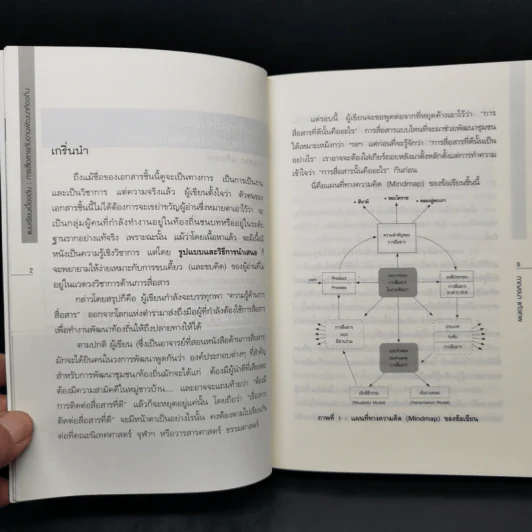 เกริ่นนำ
ถึงแม้ชื่อของเอกสารชิ้นนี้ดูจะเป็นทางการ เป็นการเป็นงาน
และเป็นวิชาการ แต่ความจริงแล้ว ผู้เขียนตั้งใจว่า ตัวตนของ
เอกสารชิ้นนี้ไม่ได้ต้องการจะเขย่าขวัญผู้อ่านซึ่งหมายตาเอาไว้ว่า จะ
เป็นกลุ่มผู้คนที่กำลังทำงานอยู่ในท้องถิ่นชนบทหรืออยู่ในระดับ
ฐานรากอย่างแท้จริง เพราะฉะนั้น แม้ว่าโดยเนื้อหาแล้ว จะมีเนื้อ
หนังเป็นความรู้เชิงวิชาการ แต่โดย รูปแบบและวิธีการนำเสนอ ก็
จะพยายามให้ง่ายเหมาะกับการขบเคี้ยว (และขบคิด) ของผู้อ่านที่ไม่
อยู่ในแวดวงวิชาการด้านการสื่อสาร
กล่าวโดยสรุปก็คือ ผู้เขียนกำลังจะบรรทุกพา "ความรู้ด้านการ
สื่อสาร" ออกจากโลกแห่งตำรามาส่งถึงมือผู้ที่กำลังต้องใช้การสื่อสาร
เพื่อทำงานพัฒนาท้องถิ่นให้ถึงปลายทางให้ได้
ตามปกติ ผู้เขียน (ซึ่งเป็นอาจารย์ที่สอนหนังสือด้านการสื่อสาร)
มักจะได้ยินคนในวงการพัฒนาพูดกันว่า องค์ประกอบต่างๆ ที่สำคัญ
สำหรับการพัฒนาชุมชน/ท้องถิ่นนั้นมักจะได้แก่ ต้องมีผู้นำที่ดี
ต้องมีความสามัคคีในหมู่ชาวบ้าน.... และอาจจะแถมท้ายว่า "ต้องมี
การติดต่อสื่อสารที่ดี" แล้วก็จะหยุดอยู่แค่นั้น โดยถือว่า "เรื่องการ
ติดต่อสื่อสารที่ดี" จะมีหน้าตาเป็นอย่างไรนั้น คงต้องตามไปเรียนกัน
ต่อที่คณะนิเทศศาสตร์ จุฬาฯ หรือวารสารศาสตร์ ธรรมศาสตร์
2
แต่รอบนี้ ผู้เขียนจะขอพูดต่อจากที่หยุดค้างเอาไว้ว่า "การ
สื่อสารที่ดีนั้นคืออะไร" การสื่อสารแบบไหนที่จะมาช่วยพัฒนาชุมชน
ได้เหมาะเหม็งกว่า ฯลฯ แต่ก่อนที่จะรู้จักว่า "การสื่อสารที่ดีนั้นเป็น
อย่างไร" เราอาจจะต้องใส่เกียร์ถอยหลังมาตั้งหลักตั้งแต่การทำความ
เข้าใจว่า "การสื่อสารนั้นคืออะไร" กันก่อน
นี่คือแผนที่ทางความคิด (Mindmap) ของข้อเขียนชิ้นนี้
ความสำคัญของ
การสื่อสาร
Product
Process
การสื่อสาร
(Ritualistic Model)
(Transmission Model)
ภาพที่ 1 : แผนที่ทางความคิด (Mindmap) ของข้อเขียน
กาญจนา แก้วเทพ